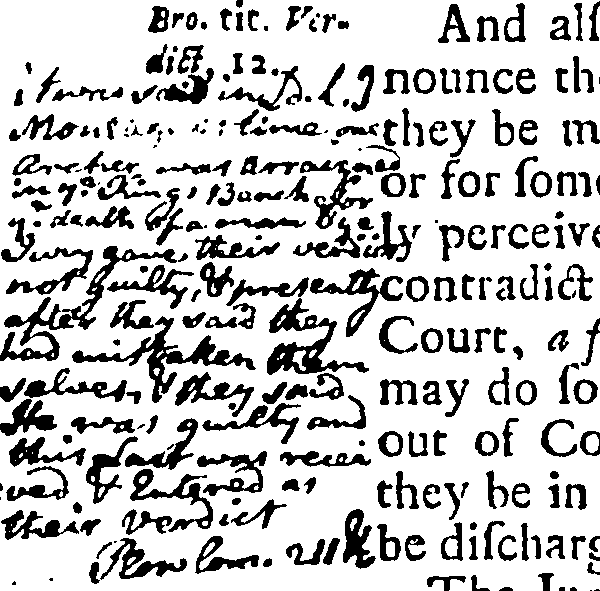 Bro. tit. Ver-
dict, 12.
it was said in Ld. C. J
Montag. time one
Archer was arraigned
in yᵉ Kings Bench for
yᵉ death of a man & yᵉ
Jury gave their verdict
not guilty, & presently
after they said they
had mistaken them
selves, & they said
He was guilty and
this Last was recei
ved & Entered as
their verdict
Plow Com. 211 b
And alſ
nounce th
they be m
or for ſome
ly perceive
contradict
Court, a ſ
may do ſo
out of Co
they be in
be diſcharg
The Ju